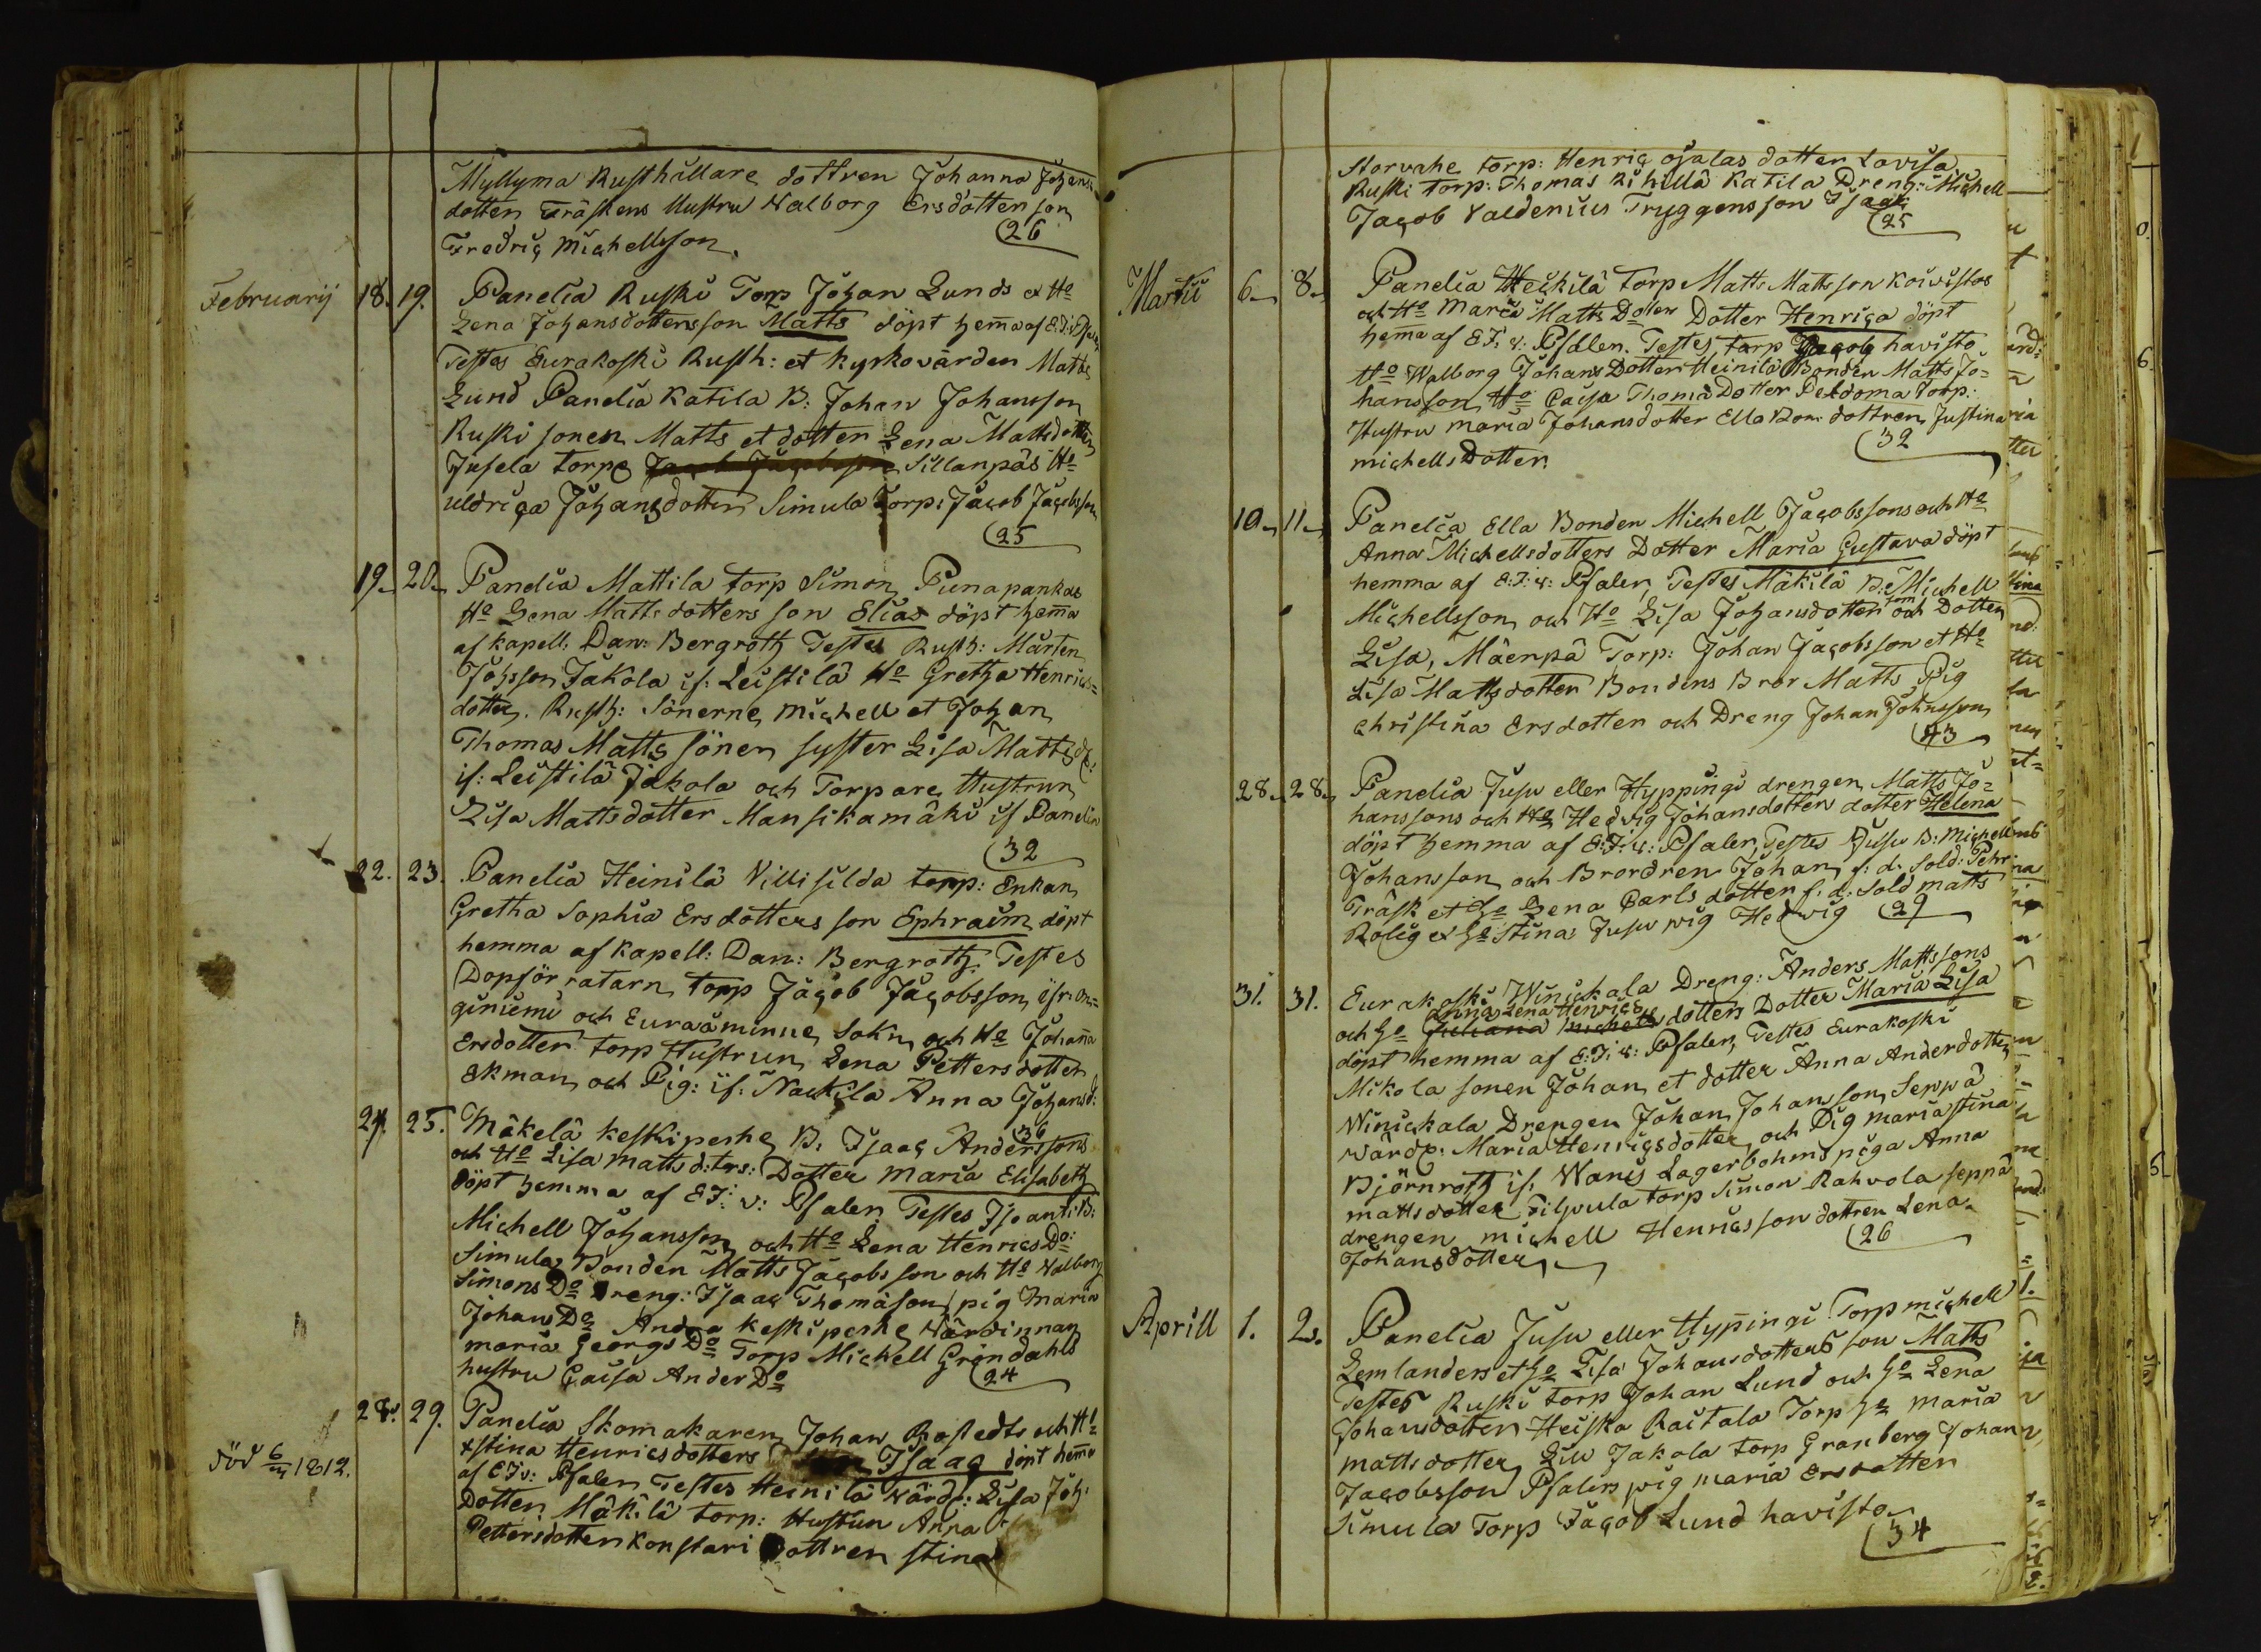 Myllyma Rusthållare dottren Johanna Johans
dotter Träskens Hustru Walborg Ersdotter son
Fredric Michellsson.
26
Februarij 18. 19. Panelia Ruski Torp Johan Lunds et Ho
Lena Johansdotters son Matts döpt hema af E. J. v. Psaler
Testes Eurakoski Rusth: et Kyrkovärden Matts
Lund Panelia Katila B: Johan Johansson
Ruski sonen Matts et dotter Lena Mattsdotter
Jusela torp Sillanpäs Ho
Uldrica Johansdotter Simula Torp: Jacob Jacobsson
25
19. 20. Panelia Mattila torp Simon Punapankas
Ho Lena Matts dotters son Elias döpt hema
af Kapell: Dan: Bergroth Testes Rusth: Mårten
Johsson Jakola if: Leistilä Ho Gretha Henrics=
dotter. Rusth: Sönerne Michell et Johan
Thomas Matts söner syster Lisa Mattsdr:
if: Leistilä Jakola och Torpare Hustrun
Lisa Mattsdotter Mansikamäki if Panelia
32
22. 23. Panelia Heinilä Villisilda torp: Enkan
Gretha Sophia Ersdotters son Ephraim döpt
hemma af Kapell: Dan: Bergroth: Testes
Dopförratarn torp Jacob Jacobsson ifr: On=
giniemi och Euraåminne Sokn och Ho Johaña
Ersdotter torp Hustrun Lena Pettersdotter
Ekman och Pig: if: Nackila Anna Johansd:
36
24. 25. Mäkelä Keskipeshe B: Isaac Anderssons
och Ho Lisa Matts d:ters: Dotter Maria Elisabeth
döpt hemma af E J: v: Psaler Testes Isoantti B:
Michell Johansson och Ho Lena Henrics Do:
Simula Bonden Matts Jacobsson och Ho Walborg
Simons Do Dreng: Isaac Thomäson pig Maria
Johans Do Keskipeshe Värdinnan
maria Georgs Do Torp Michell Gröndahls
hustru Caisa Ander Do
24
28. 29. Panelia Skomakaren Johan Rostedts och H:
xstina Henricsdotters Isaac döpt hema
död 6/4 1812.
af E J v: Psaler Testes Heinilä Värdr: Lisa Joh:
Dotter Mäkilä torp: Hustrun Anna
Pettersdotter Konstari Dottren Stina
Storvahe torp: Henric ojalas dotter Lovisa
Ruski torp: Thomas Rihillä Katila Dreng: Michell
Jacob Valdenius Tryggens son Isaac
25
Martii 6. 8. Panelia Heikilä Torp Matts Mattsson Koivistos
och Ho Maria Matts Doters Dotter Henrica döpt
hema af E J: v: Psaler. Testes torp Jacob havisto
Ho Walborg Johans Dotter Heinilä Bonden Matts Jo=
hansson Ho Caisa Thomä Dotter Peldoma torp:
Hustru maria Johansdotter Ella Bon: dottren Justina
michells Dotter.
32
10. 11. Panelia Ella Bonden Michell Jacobssons och Ho
Anna Michellsdotters Dotter Maria Gustava döpt
hemma af E: J: v: Psaler, Testes Mäkilä B: Michell
Michellsson och Ho Lisa Johansdotter och Dotter
Lisa, Mäenpä Torp: Johan Jacobsson et Ho
Lisa Mattsdotter Bondens Bror Matts Pig
christina Ersdotter och Dreng Johan Johnsson
43
28. 28. Panelia Jusu eller Hyppingi drengen Matts Jo=
hanssons och Ho Hedvig Johansdotters dotter Helena
döpt hemma af E: J: v: Psaler, Testes Jusu B: Michell
Johansson och Brordren Johan f: d: Sold: Pehr
Träsk et Ho Lena Carlsdotter f: d: Sold matts
Rolig et Ho Stina Jusu pig Hedvig
29
31. 31. Eurakoski Winickala Dreng: Anders Mattssons
Anna Lena Henrics
och Ho Juliana Michells dotters Dotter Maria Lisa
döpt hemma af E: J: v: Psaler, Testes Eurakoski
Mikola sonen Johan et dotter Anna Anderdotter
Winickala Drengen Johan Johansson Seppä
värdr: Maria Henricsdotter och Pig maria stina
Björnroth if: Wanis Lagerbohms piga Anna
mattsdotter Filpula torp Simon Rahvola seppä
drengen michell Henricsson dottren Lena
Johansdotter
26
Aprill 1. 2. Panelia Jusu eller Hypingi Torp michell
Lemlanders et Ho Lisa Johansdotters son Matts
Testes Ruski torp Johan Lund och Ho Lena
Johansdotter Heiska Raitala Torp Ho maria
mattsdotter Lill Jakola torp Granberg Johan
Jacobsson Psalers pig maria Ersdotter
Simula Torp Jacob Lund havisto
34